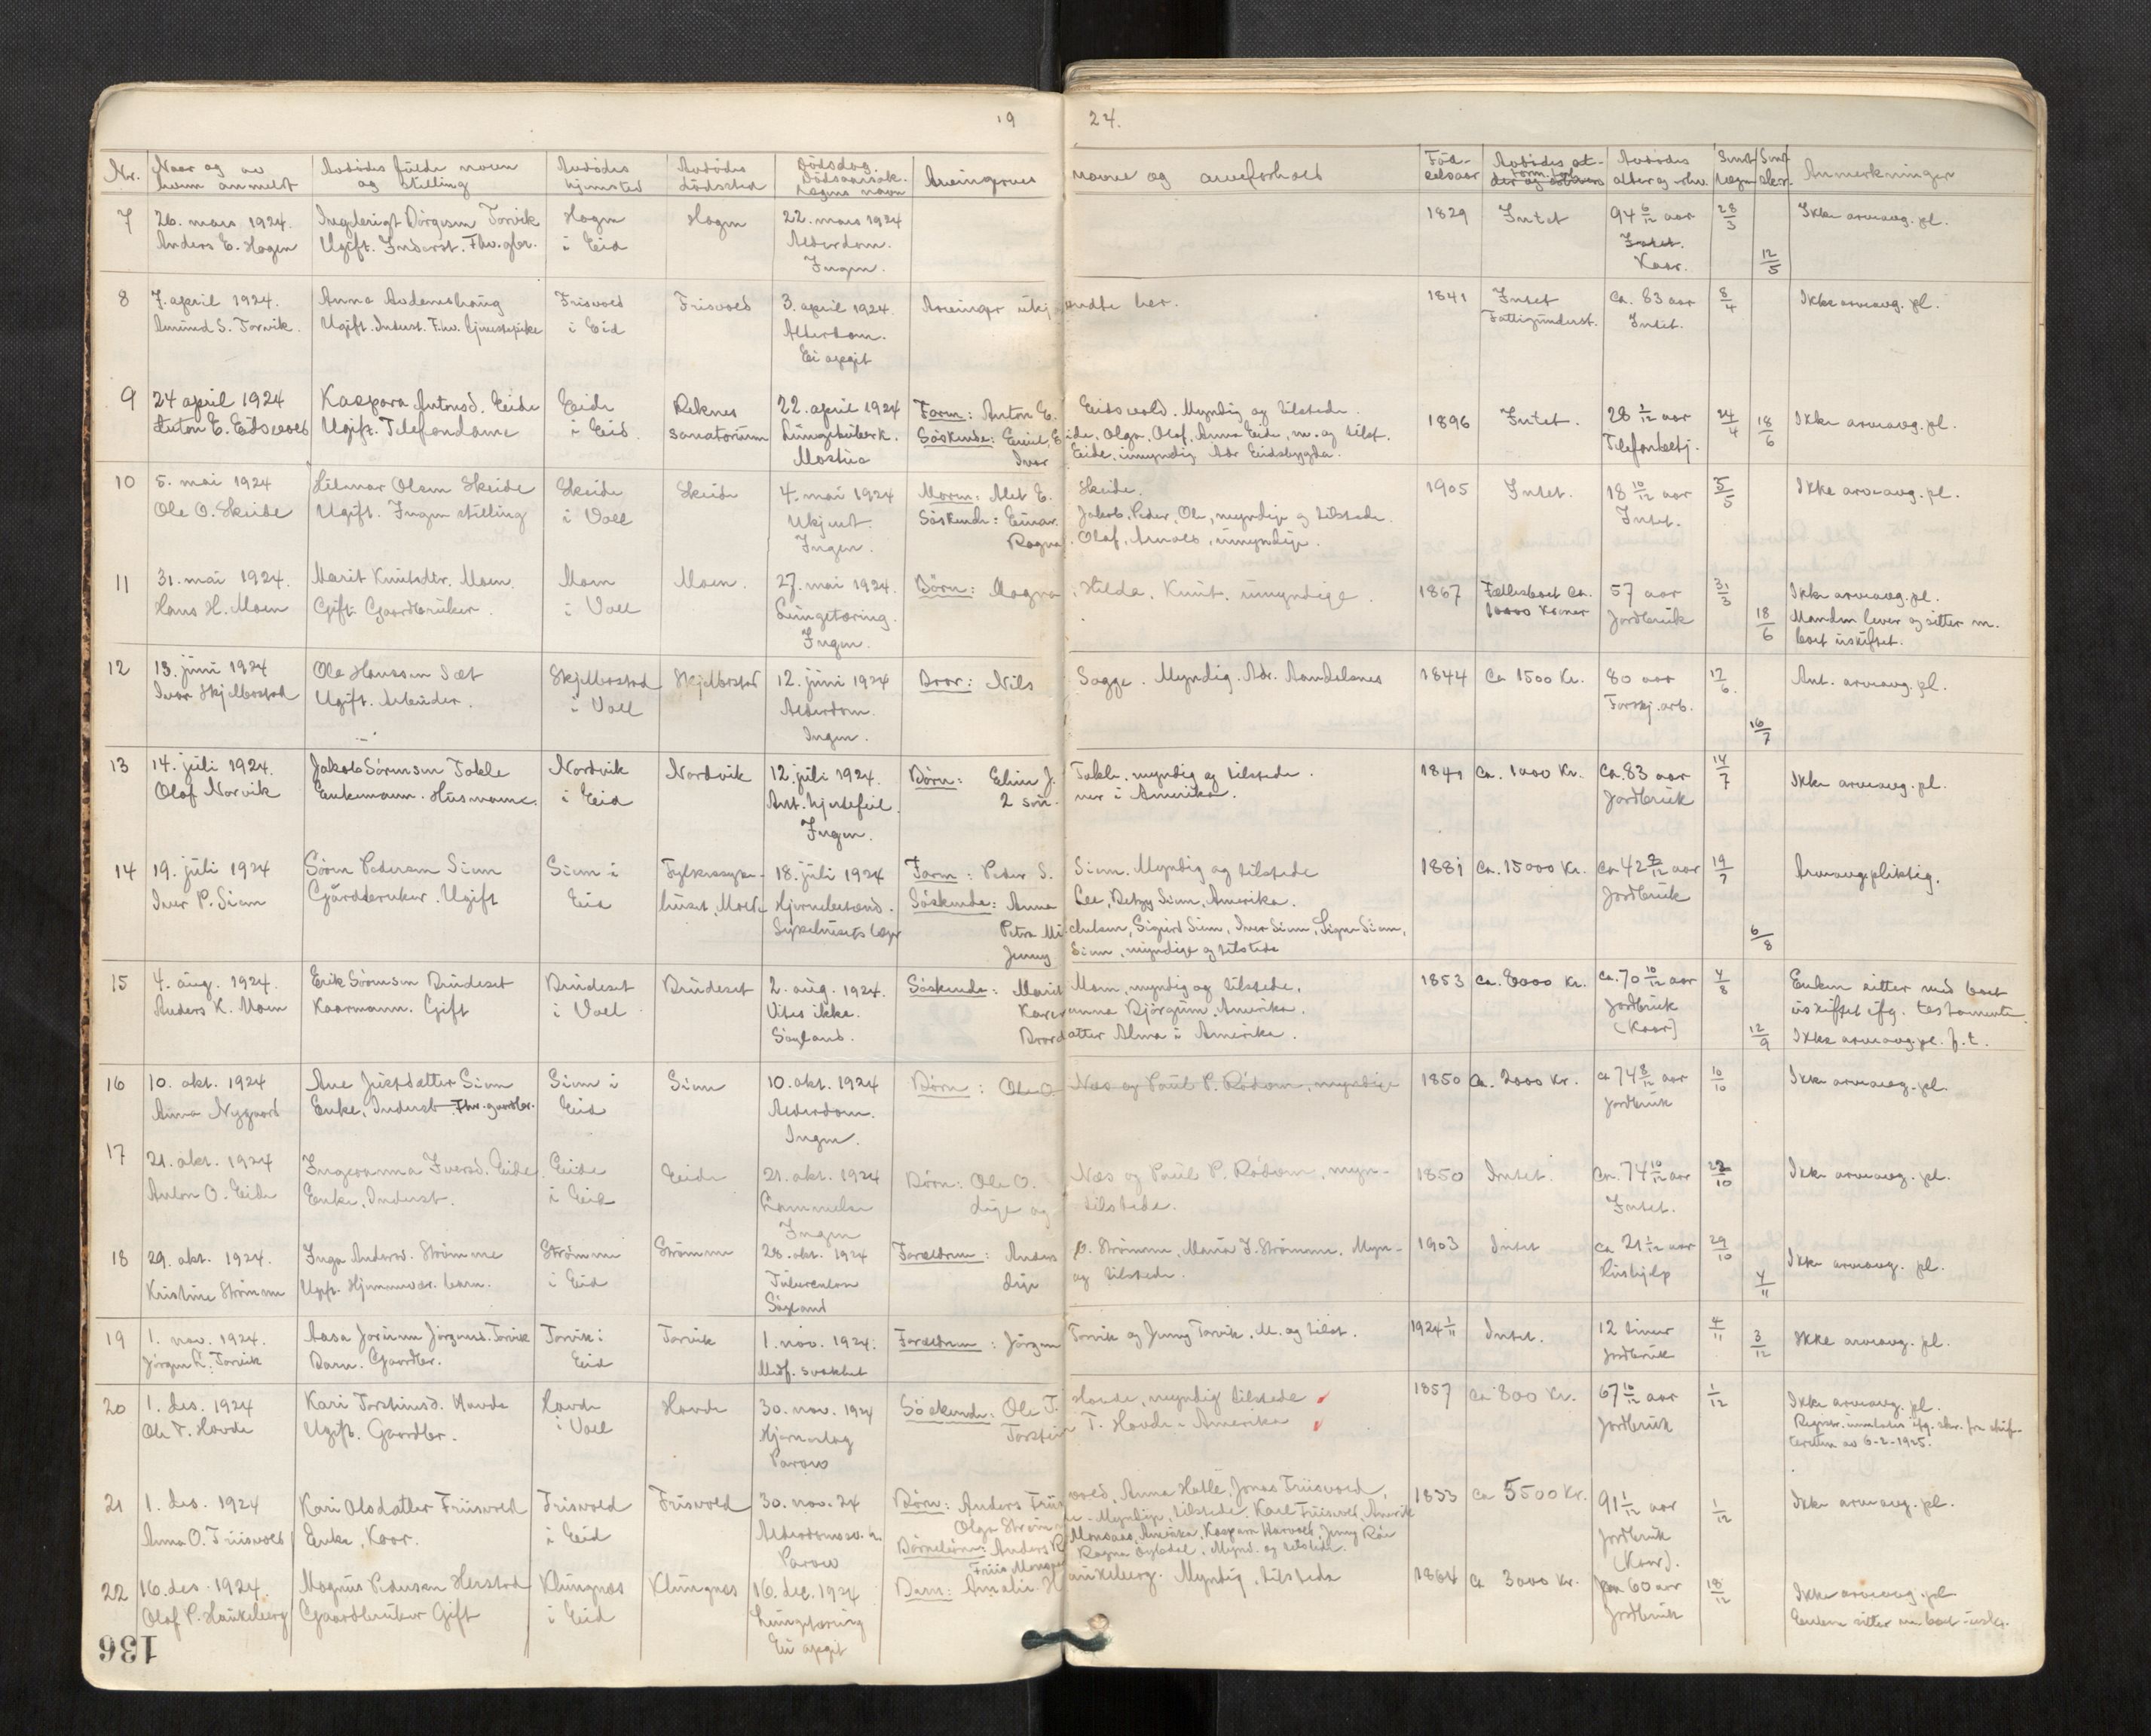 19 24.
Nr. Naar og av hvem anmeldt Avdödes fulde navn og stilling Avdödes hjemsted Avdödes dödssted Dödsdag. Dödsaarsak. Lægens navn Arvingernes navne og arveforhold Föd-selsaar Avdödes Avdödes alder og erhv. Sendt Lægen Sendt Skr. Anmerkninger
7 26. mars 1924. Ingebrigt Torvik Hagen Hagen 22. mars 1924 1829 Intet 94 6/12 aar 28/3 Ikke arveavg. pl.
Anders E. Hagen Ugift. Inderst. Fhv. gbr. i Eid Alderdom. Intet.
Ingen. Kaar. 12/5
8 7. april 1924. Anna Frisvold Frisvold 3. april 1924. Arvinger ukjendte her. 1841 Intet ca. 83 aar 8/4 Ikke arveavg. pl.
Amund S. Torvik. Ugift. Inderst. Fhv. tjenestepike i Eid Alderdom. Fattigunderst. Intet.
Ei opgit
9 24 april 1924 Kaspara Antonsd. Eide Eide Reknes 22. april 1924 Farm: Anton E. Eidsvold. Myndig og tilstede. 1896 Intet. 28 1/12 aar 24/4 18/6 Ikke arveavg. pl.
Anton E. Eidsvold Ugift. Telefondame i Eid sanatorium Lungetuberk. Söskende: Emil Eide, Olga, Olaf, Anna Eide, m. og tilst. Telefonbetj.
Mostue Ivar Eide, umyndig Adr. Eidsbygda.
10 5. mai 1924 Hilmar Olsen Skeide Skeide Skeide 4. mai 1924 Morm: Alet E. Skeide. 1905 Intet. 18 10/12 aar 5/5 Ikke arveavg. pl.
Ole O. Skeide Ugift. Ingen stilling i Voll Ukjent. Söskende: Einar, Jakob, Peder, Ole, myndige og tilstede. Intet.
Ingen. Ragna, Olaf, Arnold, umyndige.
11 31. mai 1924. Marit Knutsdtr. Moen. Moen Moen. 27. mai 1924. Börn: Magna, Hilda, Knut, umyndige. 1867 Fællesboet ca. 57 aar 31/3 Ikke arveavg. pl.
Hans H. Moen Gift. Gaardbruker. i Voll Lungetæring. 10000 Kroner Jordbruk 18/6 Manden lever og sitter m.
Ingen. boet uskiftet.
12 13. juni 1924 Ole Hanssen Sæt Skjelbostad Skjelbostad 12. juni 1924 Bror: Nils Sogge. Myndig. Adr. Aandalsnes 1844 Ca 1500 Kr. 80 aar 17/6. Ant. arveavg. pl.
Ivar Skjelbostad Ugift. Arbeider. i Voll Alderdom. Forskj. arb.
Ingen. 16/7
13 14. juli 1924. Jakob Sörensen Tokle Nordvik Nordvik 12. juli 1924. Börn: Elin J. Tokle, myndig og tilstede. 1841 Ca. 1000 Kr. Ca. 83 aar 14/7 Ikke arveavg. pl.
Olaf Norvik Enkemann. Husmann. i Eid Ant. hjertefeil. 2 sönner i Amerika. Jordbruk
Ingen.
14 19. juli 1924 Sören Pedersen Siem Siem i Fylkessyke- 18. juli 1924 Farm: Peder S. Siem. Myndig og tilstede 1881 Ca. 15000 Kr. Ca 42 8/12 aar 19/7 Arveavgpliktig.
Iver P. Siem Gårdbruker. Ugift Eid huset, Molde Hjernebetænd. Söskende: Anna Lee, Betzy Siem, Amerika. Jordbruk
Sykehusets læge Petra Michelsen, Sigurd Siem, Iver Siem, Signe Siem, 6/8
Jenny Siem, myndige og tilstede
15 4. aug. 1924. Erik Sörensen Brudeset Brudeset Brudeset 2. aug. 1924. Söskende: Marit Moen, myndig og tilstede. 1853 Ca. 8000 Kr. Ca. 70 10/12 aar 4/8 Enken sitter med boet
Anders K. Moen Kaarmann. Gift i Voll Vites ikke. Karen anna Björgum, Amerika. Jordbruk uskiftet ifg. testamente.
Søyland. Brordatter Alma i Amerika. (Kaar) 12/9 Ikke arveavg. pl. f. t.
16 10. okt. 1924 Ane Siem Siem i Siem 10. okt. 1924 Börn: Ole O. Næs og Paul P. Rödven, myndige 1850 Ca. 2000 Kr. ca 74 8/12 aar 10/10 Ikke arveavg. pl.
Anna Nygaard Enke, Inderst. Fhv. gaardbr. Eid Alderdom. Jordbruk
Ingen.
17 21. okt. 1924 Ingeranna Iversd. Eide Eide Eide 21. okt. 1924 Börn: Ole O. Næs og Paul P. Rödven, myn- 1850 Intet. Ca. 74 10/12 aar 22/10 Ikke arveavg. pl.
Anton O. Eide Enke, Inderst. i Eid Lammelse dige og tilstede. Intet.
Ingen
18 29. okt. 1924. Inga Andersd. Strömme Strömme Strömme 28. okt. 1924 Foreldrene: Anders O. Strömme, Maria J. Strömme. Myn- 1903 Intet ca 21 1/12 aar 29/10 Ikke arveavg. pl.
Kristine Strömme Ugift. Hjemmevær. barn. i Eid Tuberculose dige og tilstede. Hushjelp 4/11
Søyland
19 1. nov. 1924. Aasa Jorunn Jörgensd. Torvik Torvik i Torvik 1. nov. 1924. Foreldrene: Jörgen Torvik og Jenny Torvik. M. og tilst. 1924 1/11 Intet. 12 timer 4/11 3/12 Ikke arveavg. pl.
Jörgen L. Torvik Barn. Gaardbr. Eid Medf. svakhet Jordbruk
20 1. des. 1924 Kari Torsteinsd. Hovde Hovde Hovde 30. nov. 1924 Söskende: Ole T. Hovde, myndig tilstede 1857 ca 800 Kr. 67 10/12 aar 1/12 Ikke arveavg. pl.
Ole T. Hovde Ugift. Gaardbr. i Voll Hjerneslag Torstein T. Hovde i Amerika Jordbruk Registr. ifg. skr. fra skif-
Parow teretten av 6-2-1925.
21 1. des. 1924 Kari Olsdatter Friisvold Frisvold Frisvold 30. nov. 24 Börn: Anders Friisvold, Anna Hatle, Jonas Friisvold, 1833 ca 5500 Kr. 91 1/12 aar 1/12 Ikke arveavg. pl.
Anna O. Friisvold Enke, Kaar. i Eid Olga Strömme - Myndige, tilstede. Karl Friisvold, Amerika Jordbruk
Parow Börnebörn: Anders Monsaas, Amerika, Kaspara Harvold, Jenny (Kaar).
Friis Ragna, Mynd. og tilstede.
22 16. des. 1924. Magnus Pedersen Herstad Klungnes Klungnes 16. dec. 1924 Barn: Amalie Haukeberg. Myndig, tilstede 1864 Ca 3000 Kr. 60 aar 18/12 Ikke arveavg. pl.
Olaf P. Haukeberg Gaardbruker Gift i Eid Lungetæring Jordbruk Enken sitter m. boet uski.
Ei opgit
136